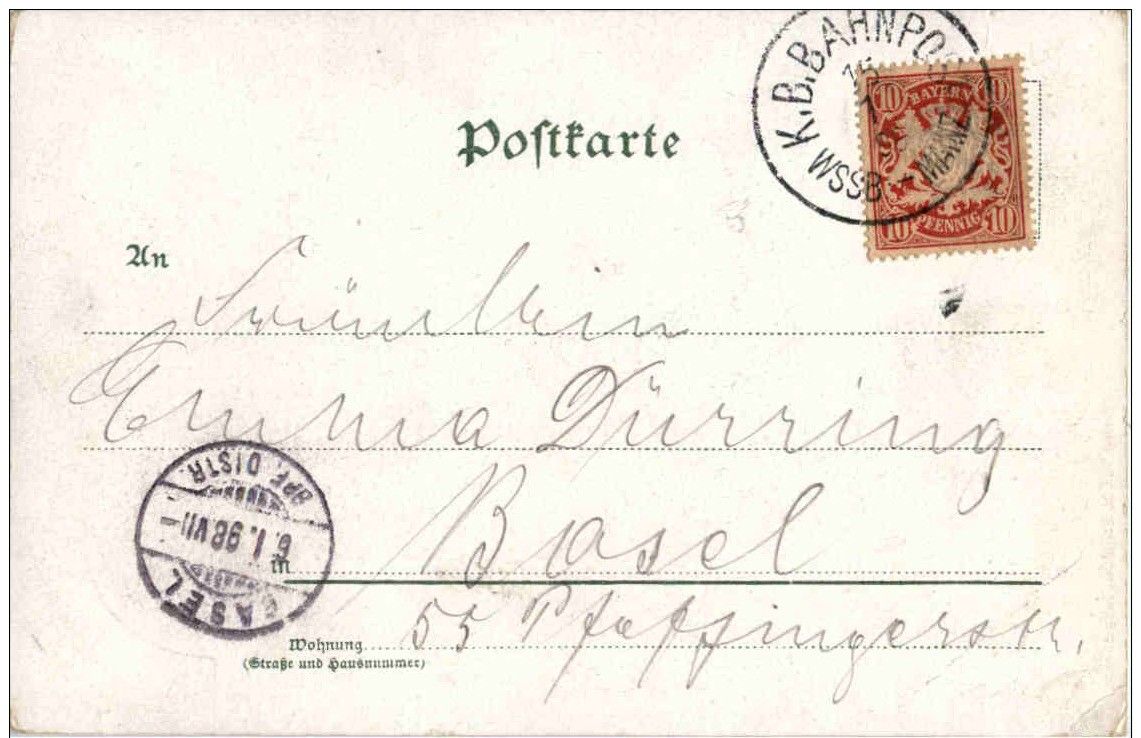 K.B.BAHNPOS
15
1
WSSB - MAINZ
10 BAYERN 10
10 PFENNIG 10
Postkarte
An
Fräulein
Emma Dürring
BASEL
6.I.98 VII-
BRF. DISTR.
in Basel
Wohnung
(Straße und Hausnummer)
55 Pfeffingerstr.